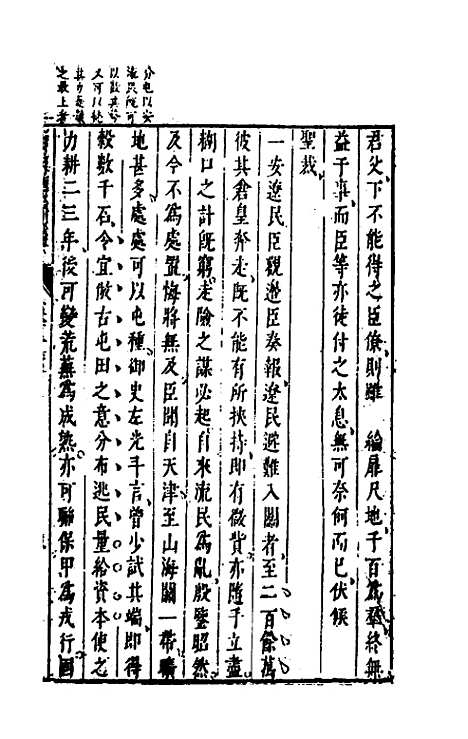 分屯以安
流民既可
以散其
又可以
其
之最上者
君父下不能得之臣僚則雖 綸扉尺地千百為羣終無
益于事而臣等亦徒付之太息無可奈何而已伏候
聖裁
一安遼民臣覩邇臣奏報遼民避難入關者至二百餘萬
彼其倉皇奔走既不能有所挾持即有微貲亦隨手立盡
糊口之計既窮走險之謀必起自來流民為亂殷鑒昭然
及今不為處置悔將無及臣聞自天津至山海關一帶曠
地甚多處處可以屯種御史左光斗言曾少試其端即得
穀數千石今宜倣古屯田之意分布逃民量給資本使之
力耕二三年後可變荒蕪為成熟亦可聯保甲為戎行固